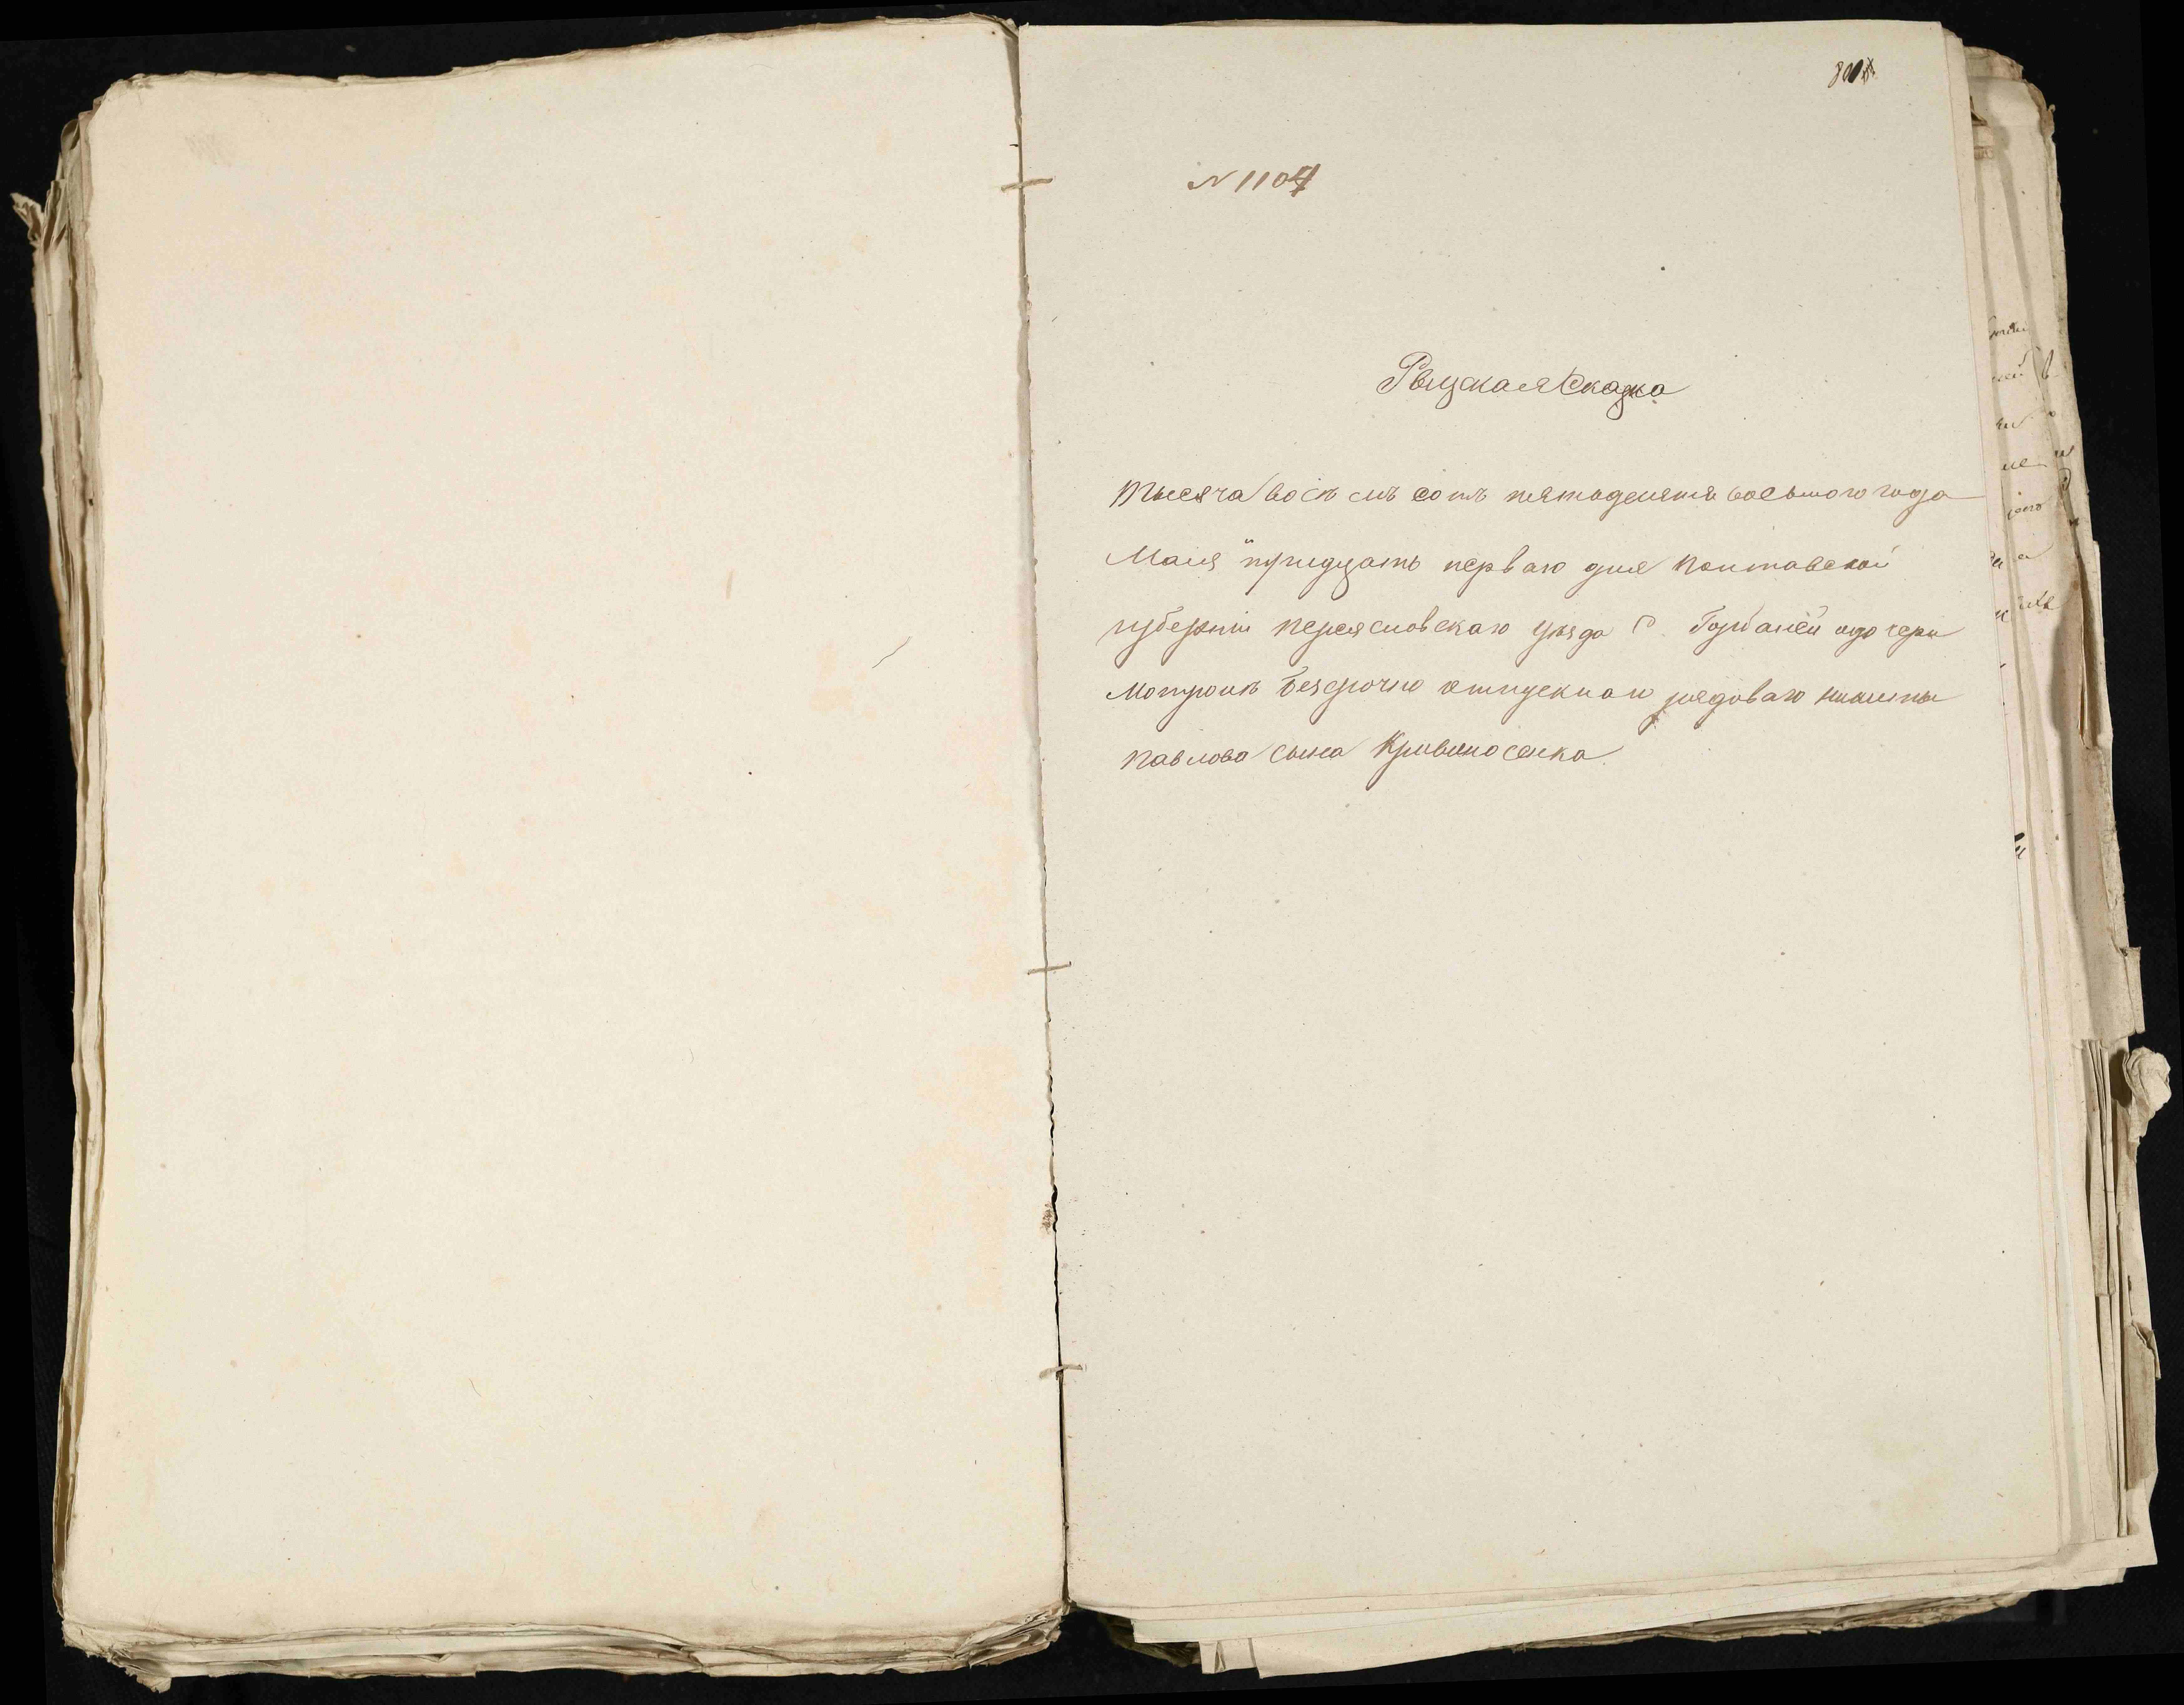 N 1104
Рѣвизская Сказка
тысяча восѣмъ сотъ пятодесятя восьмого года
Маия тридцать перваго дня Полтавской
губерніи переясловскаго уѣзда С. Горбаней о дочери
Мотронѣ безсрочно отпускнаго рядоваго никиты
павлова сына Кривоносенка.